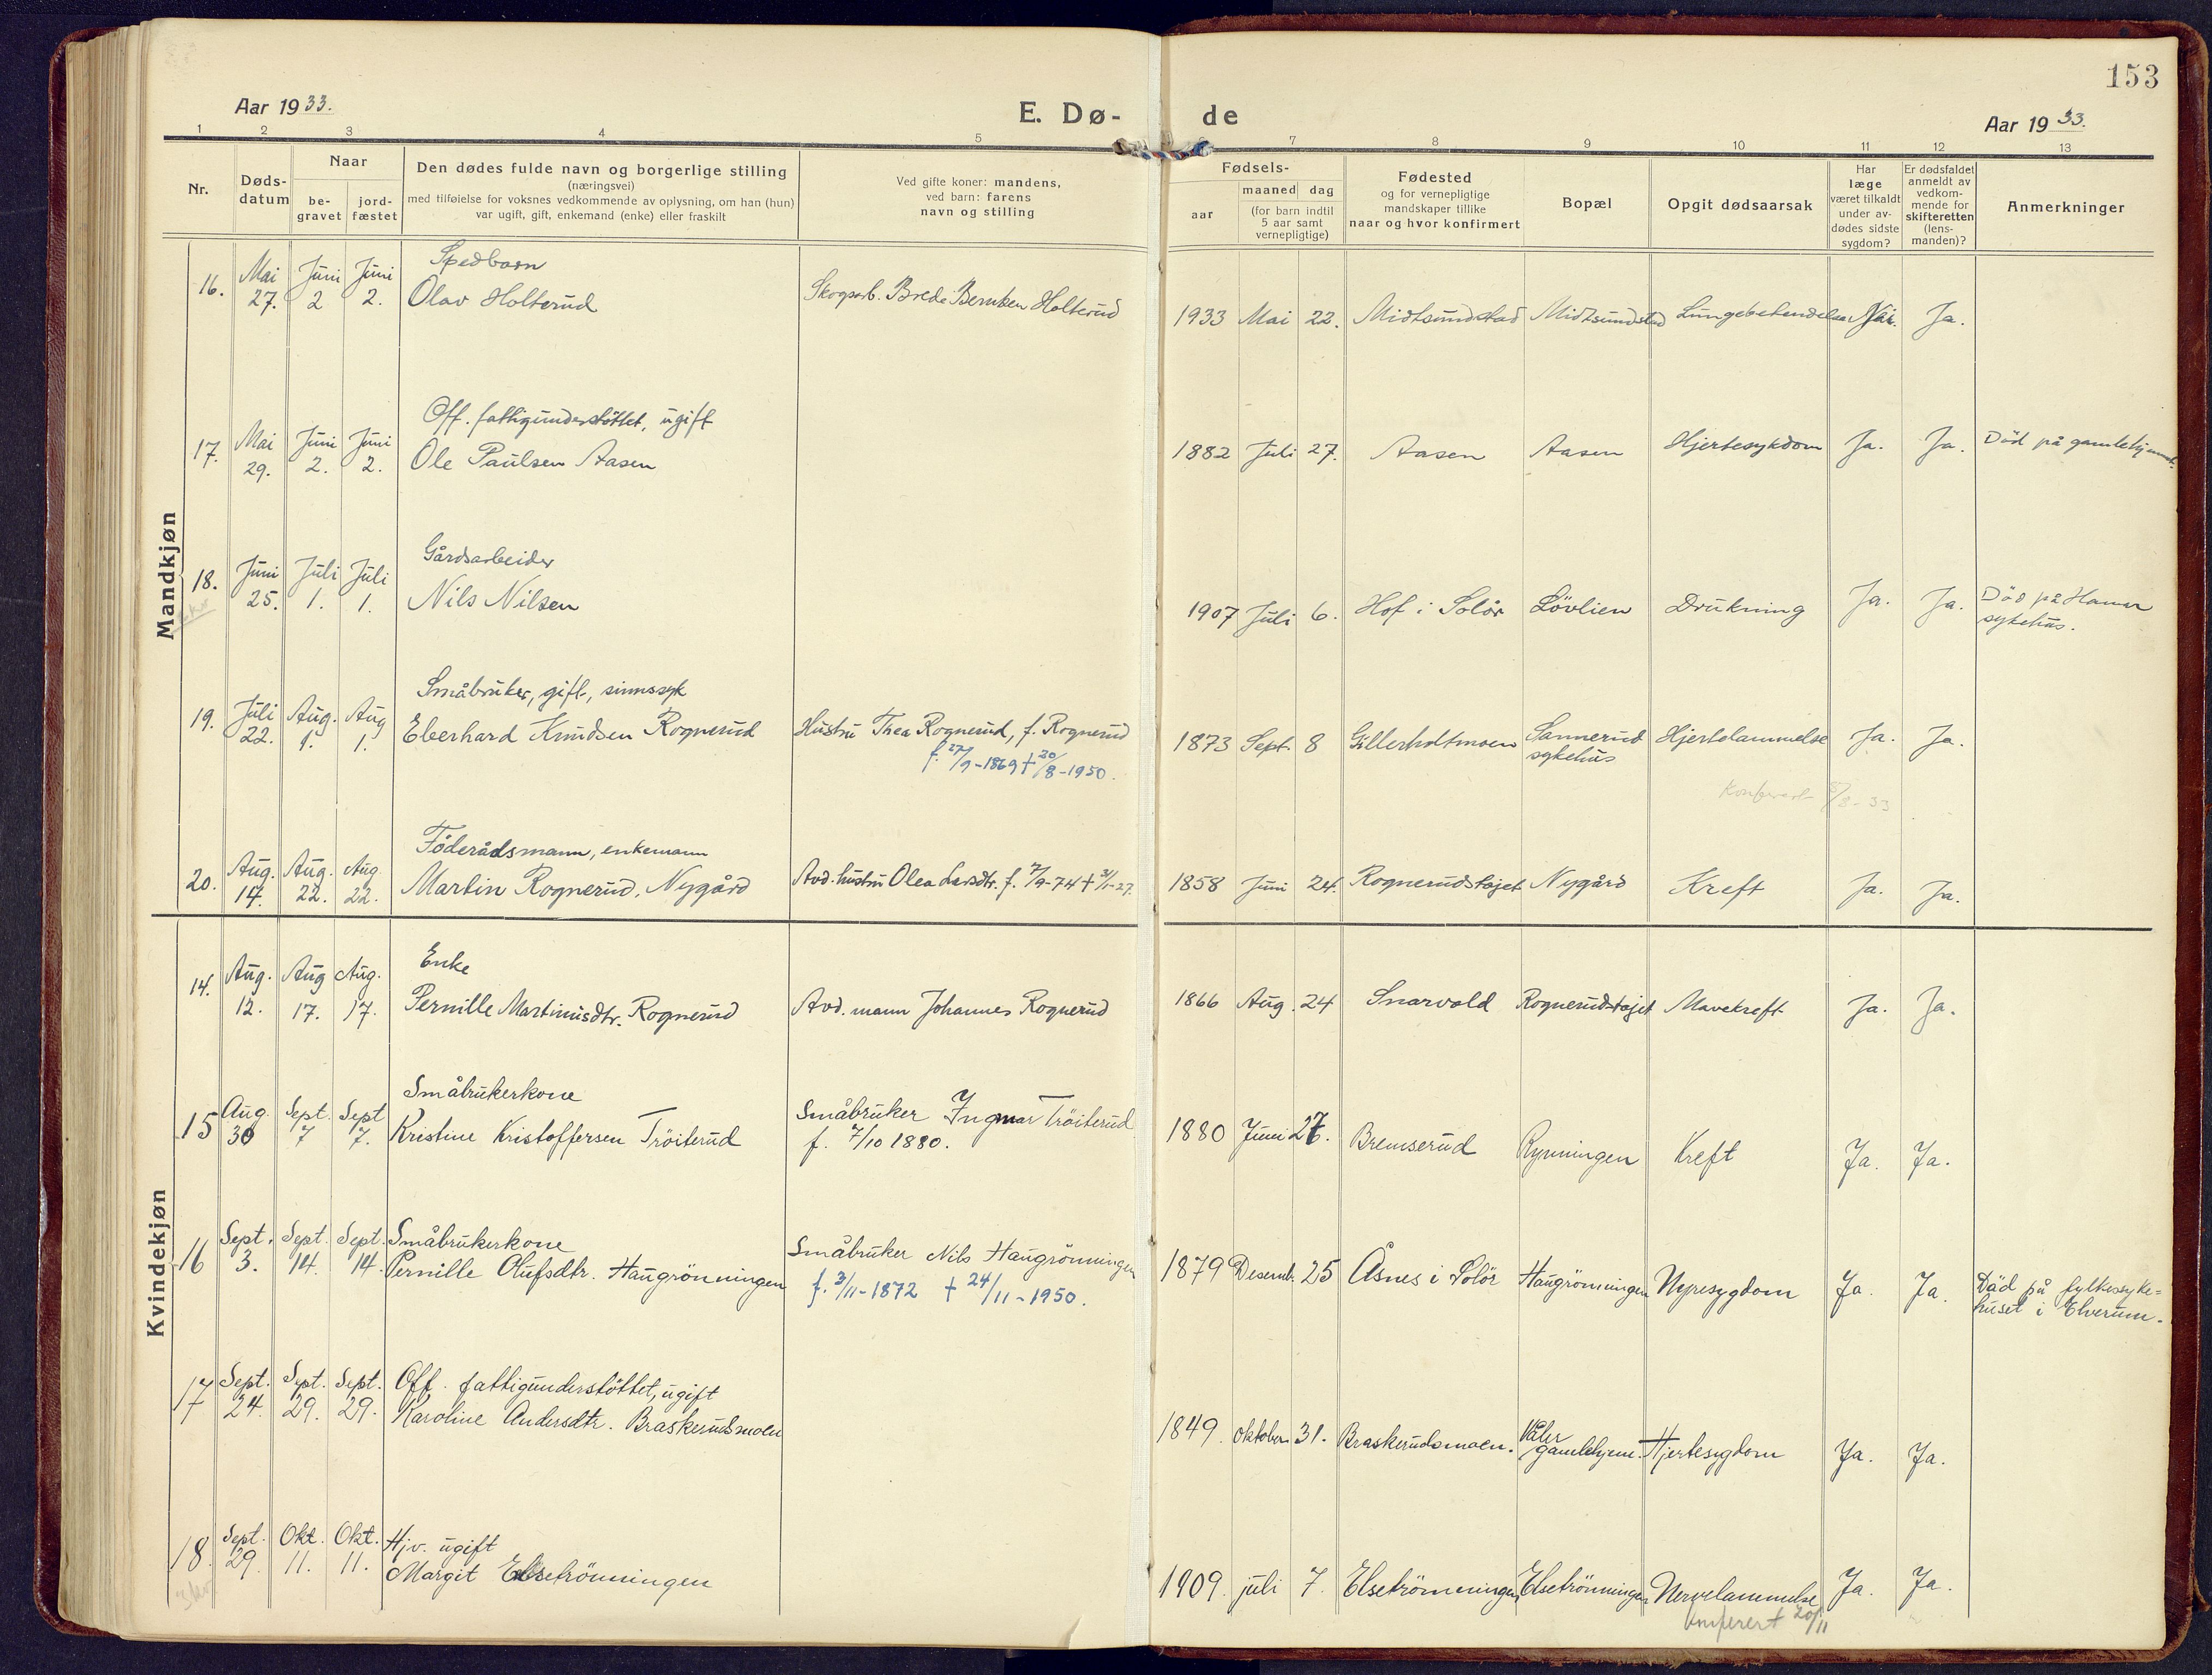 153
Aar 1933.
E. Dø-
de
Aar 1933.
1 2 3 4 5 7 8 9 10 11 12 13
Nr.
Døds-
datum
Naar
be-
gravet
jord-
fæstet
Den dødes fulde navn og borgerlige stilling
(næringsvei)
med tilføielse for voksnes vedkommende av oplysning, om han (hun)
var ugift, gift, enkemand (enke) eller fraskilt
Ved gifte koner: mandens,
ved barn: farens
navn og stilling
Fødsels-
aar
maaned
dag
(for barn indtil
5 aar samt
vernepligtige)
Fødested
og for vernepligtige
mandskaper tillike
naar og hvor konfirmert
Bopæl
Opgit dødsaarsak
Har
læge
været tilkaldt
under av-
dødes sidste
sygdom?
Er dødsfaldet
anmeldt av
vedkom-
mende for
skifteretten
(lens-
manden)?
Anmerkninger
Mandkjøn
Spedbarn
16. Mai 27. Juni 2 Juni 2. Olav Holterud Skogsarb. Brede Berntsen Holterud 1933 Mai 22. Midtsundstad Midtsundstad Lungebetendelse Ja.
Off. fattigunderstöttet, ugift
17. Mai 29. Juni 2. Juni 2. Ole Paulsen Aasen 1882 Juli 27. Aasen Aasen Hjertesykdom Ja. Ja. Död på gamlehjemmet.
Gårdsarbeider
18. Juni 25. Juli 1. Juli 1. Nils Nilsen 1907 Juli 6. Hof i Solör Lövlien Drukning Ja. Ja. Död på Hamar
sykehus.
Småbruker, gift, sinnssyk
19. Juli 22. Aug. 1. Aug 1. Eberhard Knudsen Rognerud Hustru Thea Rognerud, f. Rognerud 1873 Sept. 8 Gillerholtmoen Sannerud
sykehus Hjertelammelse Ja. Ja.
f. 27/9-1869 † 20/8-1950.
Konferert 8/8-33
Föderådsmann, enkemann
20. Aug. 14. Aug. 22. Aug. 22. Martin Rognerud, Nygård Avd. hustru Olea Larsdtr. f. 7/9-74 † 3/1-27. 1858 Juni 24. Rognerudstøjet Nygård Kreft Ja. Ja.
Kvindekjøn
Enke
14. Aug. 12. Aug 17. Aug. 17. Pernille Martinusdtr. Rognerud Avd. mann Johannes Rognerud 1866 Aug. 24 Snarvold Rognerudstøjet Mavekreft Ja. Ja.
Småbrukerkone
15 Aug. 30 Sept. 7 Sept 7. Kristine Kristoffersen Tröiterud Småbruker Ingmar Tröiterud 1880 Juni 27. Bremserud Rynningen Kreft Ja. Ja.
f. 7/10 1880.
Småbrukerkone
16 Sept. 3. Sept. 14. Sept. 14. Pernille Olufsdtr. Haugrönningen Småbruker Nils Haugrönningen 1879 Desemb. 25 Åsnes i Solör Haugrönningen Nyresygdom Ja. Ja. Död på fylkessyke-
huset i Elverum.
f. 3/11-1872 † 24/11-1950.
Off. fattigunderstöttet, ugift
17 Sept. 24. Sept. 29. Sept. 29. Karoline Andersdtr. Braskerudsmoen 1849. Oktober 31. Braskerudsmoen. Våler
gamlehjem. Hjertesygdom Ja. Ja.
Hjv. ugift
18. Sept. 29. Okt. 11. Okt. 11. Margit Elsetrönningen 1909. juli 7. Elsetrönningen Elsetrönningen Nervelammelse Ja. Ja.
konferert 20/11